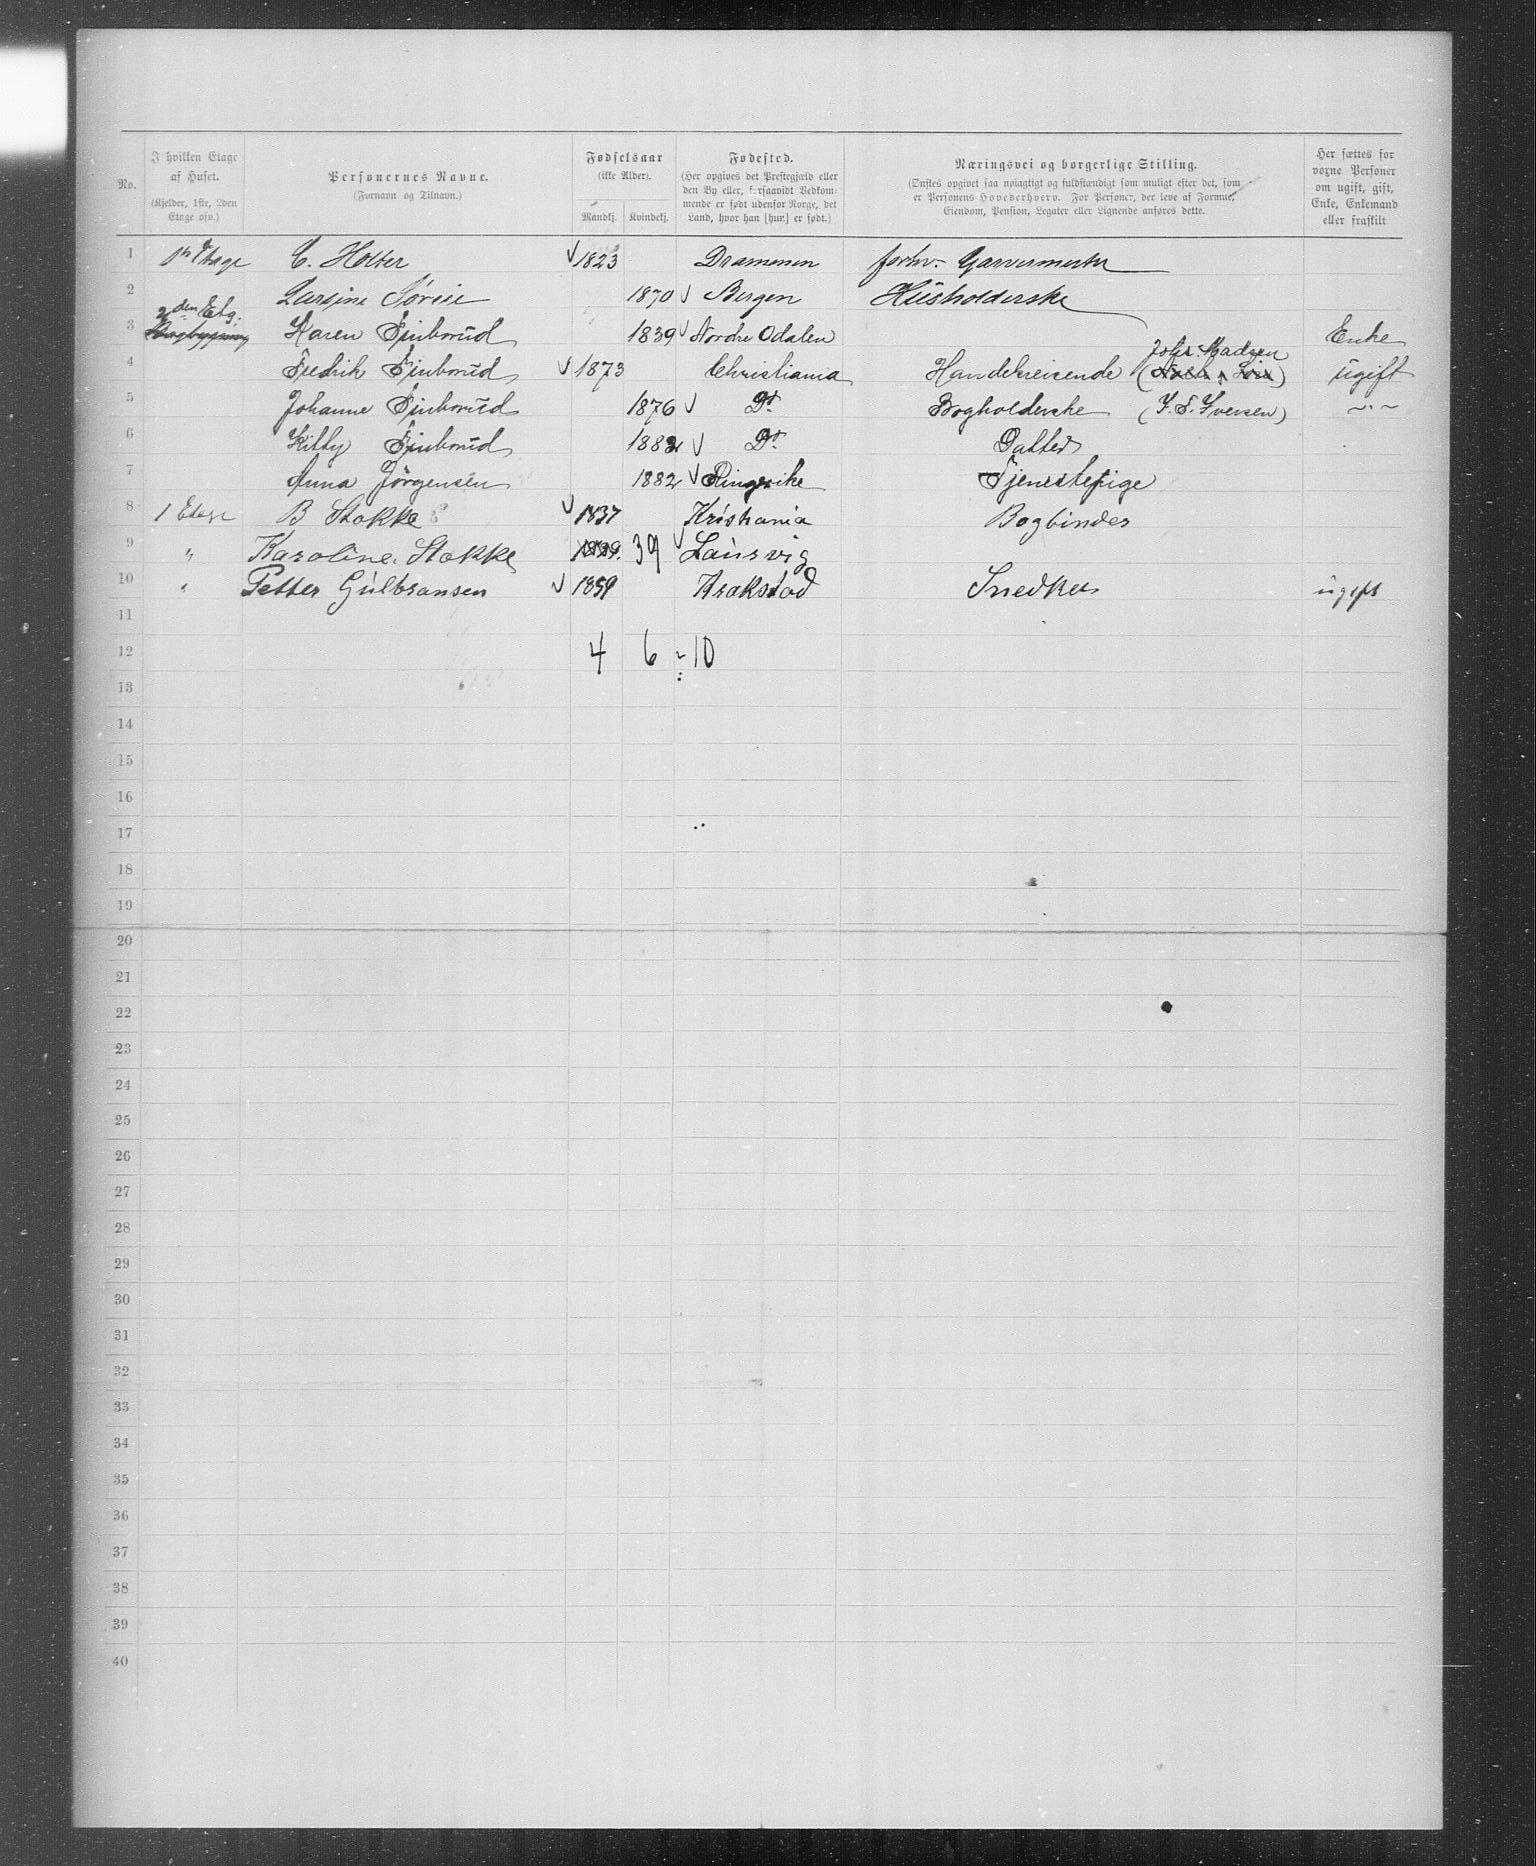 No. I hvilken Etage af Huset. (Kjelder, 1ste, 2den Etage osv.) Personernes Navne. (Fornavn og Tilnavn.) Fødselsaar (ikke Alder). Mandkj. Kvindekj. Fødested. (Her opgives det Prestegjæld eller den By eller, forsaavidt Vedkommende er født udenfor Norge, det Land, hvor han [hun] er født.) Næringsvei og borgerlige Stilling. (Ønskes opgivet saa nøiagtigt og fuldstændigt som muligt efter det, som er Personens Hovederhverv. For Personer, der leve af Formue, Eiendom, Pension, Legater eller Lignende anføres dette. Her sættes for voxne Personer om ugift, gift, Enke, Enkemand eller fraskilt
1 1ste Etage C. Holter √ 1823 Drammen forhv. Garvermester
2 Larsine Søreie 1870 √ Bergen Husholderske
3 2den Etg. Karen Finborud 1839 √ Nordre Odalen Enke
4 Fredrik Finborud √ 1873 Christiania Handelsreisende Johs. Madsen ugift
5 Johanne Finborud 1876 √ Do Bogholderske (I. S. Iversen) — " —
6 Kitty Finborud 1882 √ Do Datter
7 Anna Jörgensen 1882 √ Ringerike Tjenestepige
8 1 Etage B Stokke √ 1837 Kristiania Bogbinder
9 " Karoline Stokke 1839. 39 √ Laurvig
10 " Petter Gulbransen √ 1859 Krakstad Snedker ugift
11
12 4 6 - 10
13
14
15
16
17
18
19
20
21
22
23
24
25
26
27
28
29
30
31
32
33
34
35
36
37
38
39
40